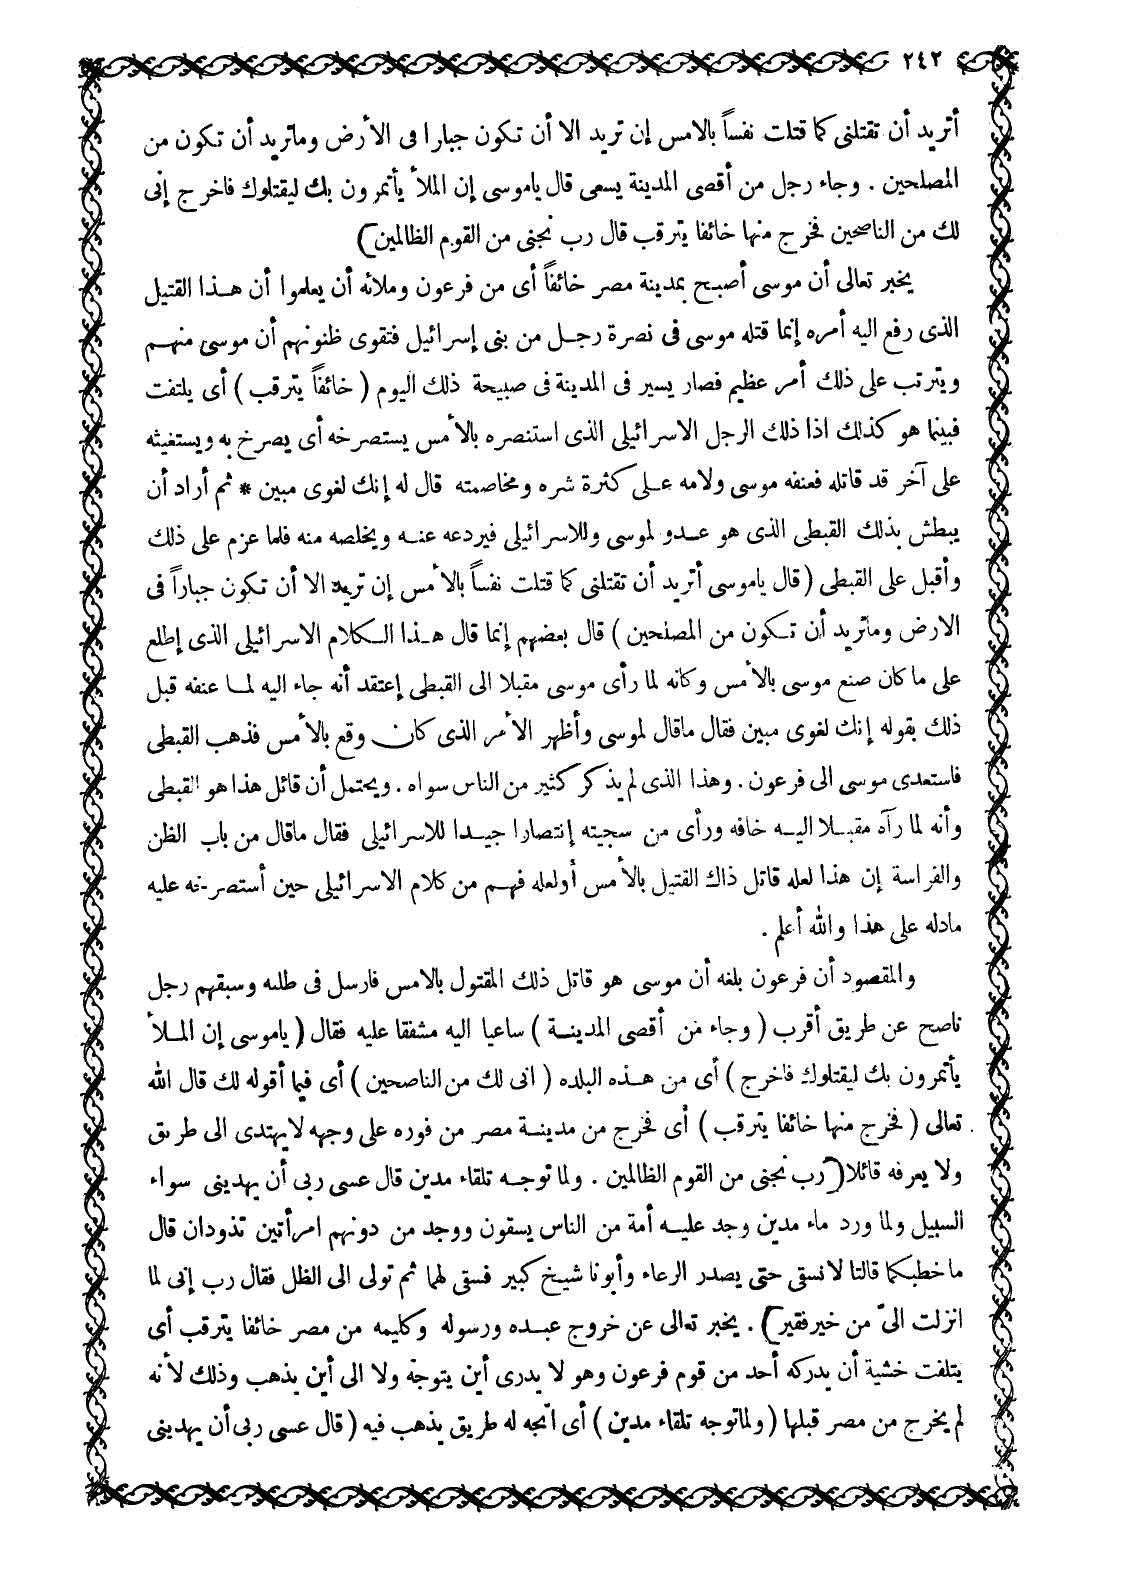 ٢٤٢
أتريد أن تقتلنى كما قتلت نفساً بالامس إن تريد الا أن تكون جبارا فى الأرض وماتريد أن تكون من
المصلحين . وجاء رجل من أقصى المدينة يسعى قال ياموسى إن الملأ يأتمرون بك ليقتلوك فاخرج إنى
لك من الناصحين فخرج منها خائفا يترقب قال رب نجنى من القوم الظالمين )
يخبر تعالى أن موسى أصبح بمدينة مصر خائفاً أى من فرعون وملائه أن يعلموا أن هـذا القتيل
الذى رفع اليه أمره إنما قتله موسى فى نصرة رجـل من بنى إسرائيل فتقوى ظنونهم أن موسى منهـم
ويترتب على ذلك أمر عظيم فصار يسير فى المدينة فى صبيحة ذلك اليوم ( خائفاً يترقب ) أى يلتفت
فبينما هو كذلك اذا ذلك الرجل الاسرائيلى الذى استنصره بالأمس يستصرخه أى يصرخ به ويستغيثه
على آخر قد قاتله فعنفه موسى ولامه عـلى كثرة شره ومخاصمته قال له إنك لغوى مبين * ثم أراد أن
يبطش بذلك القبطى الذى هو عـدو لموسى وللاسرائيلى فيردعه عنـه ويخلصه منه فلما عزم على ذلك
وأقبل على القبطى ( قال ياموسى أتريد أن تقتلنى كما قتلت نفساً بالأمس إن تريد الا أن تكون جباراً فى
الارض وماتريد أن تـكون من المصلحين ) قال بعضهم إنما قال هـذا الـكلام الاسرائيلى الذى إطلع
على ماكان صنع موسى بالأمس وكانه لما رأى موسى مقبلا الى القبطى إعتقد أنه جاء اليه لمـا عنفه قبل
ذلك بقوله إنك لغوى مبين فقال ماقال لموسى وأظهر الأمر الذى كان وقع بالأمس فذهب القبطى
فاستعدى موسى الى فرعون . وهذا الذى لم يذكر كثير من الناس سواه . ويحتمل أن قائل هذا هو القبطى
وأنه لما رآه مقبـلا اليـه خافه ورأى من سجيته إنتصارا جيـدا للاسرائيلى فقال ماقال من باب الظن
والفراسة إن هذا لعله قاتل ذاك القتيل بالأمس أولعله فهـم من كلام الاسرائيلى حين أستصرخه عليه
مادله على هذا والله أعلم .
والمقصود أن فرعون بلغه أن موسى هو قاتل ذلك المقتول بالامس فارسل فى طلبه وسبقهم رجل
ناصح عن طريق أقرب ( وجاء من أقصى المدينـة ) ساعيا اليه مشفقا عليه فقال ( ياموسى إن المـلأ
يأتمرون بك ليقتلوك فاخرج ) أى من هـذه البلده ( انى لك من الناصحين ) أى فيما أقوله لك قال الله
تعالى ( فخرج منها خائفا يترقب ) أى فخرج من مدينـة مصر من فوره على وجهه لايهتدى الى طريق
ولا يعرفه قائلا ( رب نجنى من القوم الظالمين . ولما توجـه تلقاء مدين قال عسى ربى أن يهدينى سواء
السبيل ولما ورد ماء مدين وجد عليـه أمة من الناس يسقون ووجد من دونهم امرأتين تذودان قال
ماخطبكما قالتا لانسقى حتى يصدر الرعاء وأبونا شيـخ كبير فسقى لهما ثم تولى الى الظل فقال رب إنى لما
انزلت الىّ من خيرفقير ) . يخبر تعالى عن خروج عبـده ورسوله وكليمه من مصر خائفا يترقب أى
يتلفت خشية أن يدركه أحد من قوم فرعون وهو لا يدرى أين يتوجه ولا الى أين يذهب وذلك لأنه
لم يخرج من مصر قبلها ( ولماتوجه تلقاء مدين ) أى اتجه له طريق يذهب فيه ( قال عسى ربى أن يهدينى